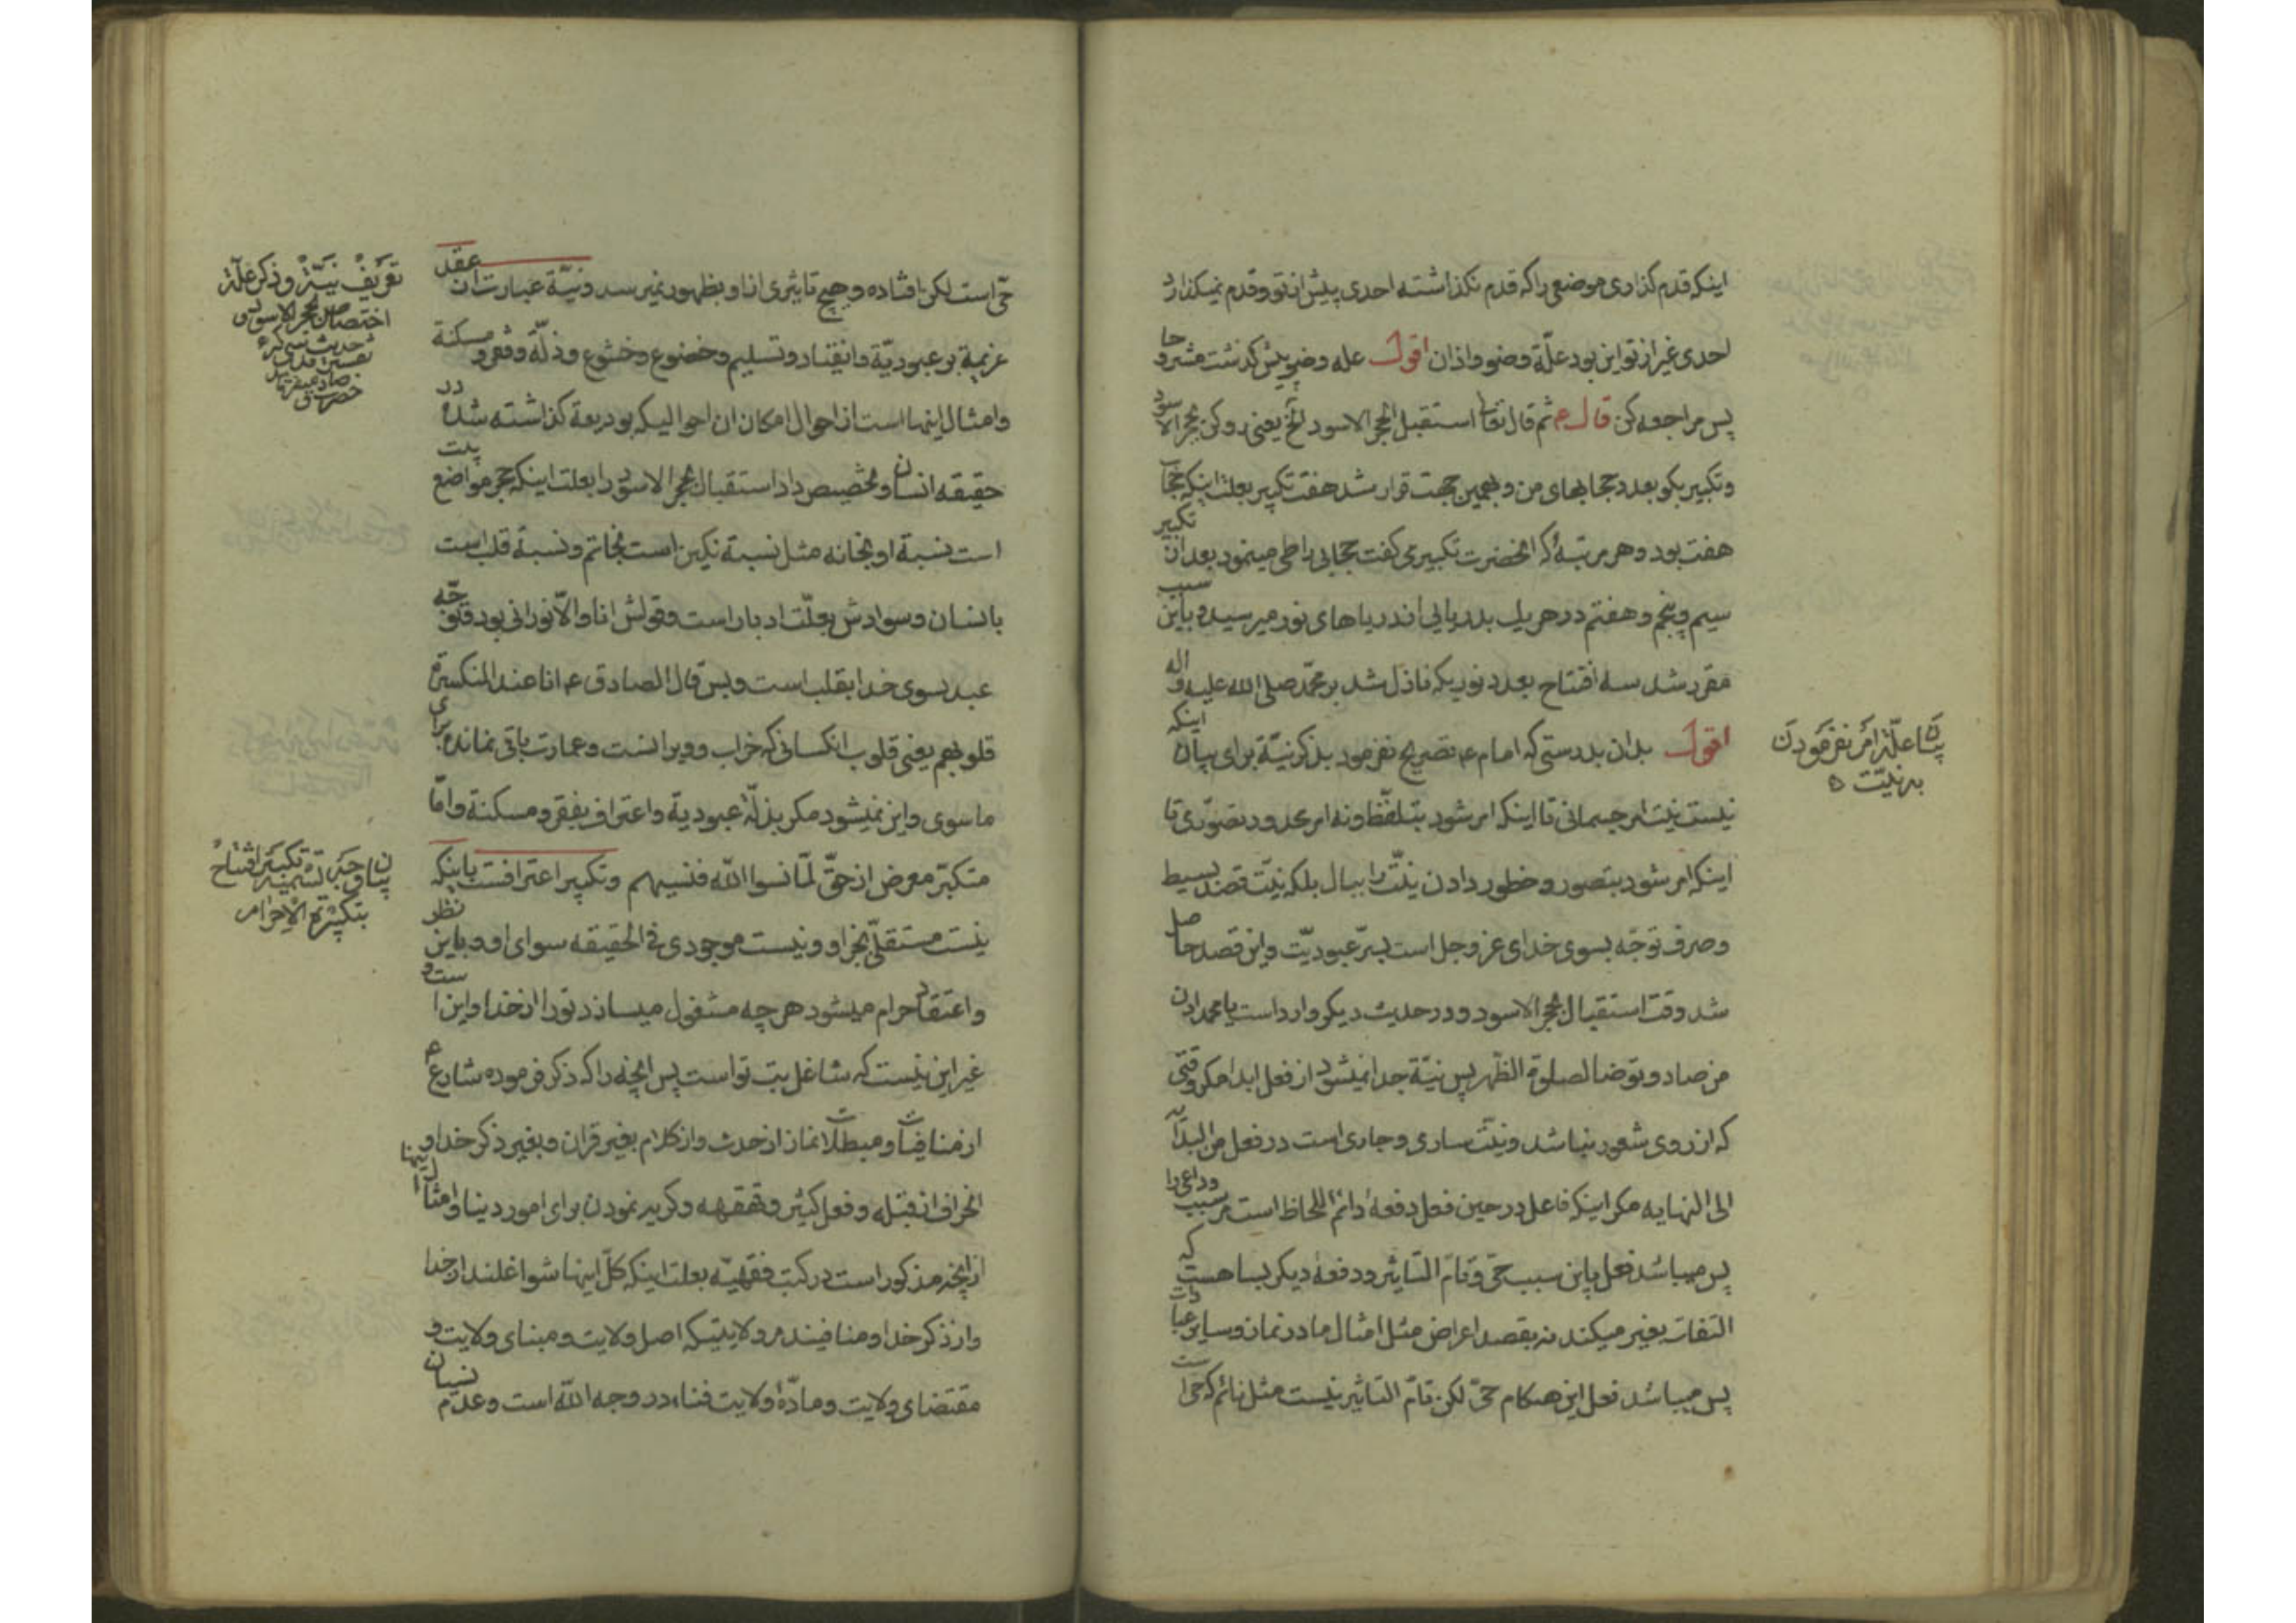 اینکه قدم کذاری موضعی را که قدم نکذاشته احدی پیش از تو و قدم نمیکذارد
احدی غیر از تو این بود علّة وضو و اذان اقول عله وضو پیش کذشت مشروحا
پس مراجعه کن قال ع ثم قال تعا استقبل الحجر الاسود الخ یعنی رو کن بحجر الاسود
و تکبیر بکو بعدد حجابهای من و بهمین جهت قرار شد هفت تکبیر بعلت اینکه حجاب
هفت بود و هر مرتبهٔ که انحضرت تکبیری کفت حجابی را طی مینمود بعد از تکبیر
سیم و پنجم و هفتم در هر یک بدریائی از دریاهای نور میرسید و باین سبب
مقرر شد سه افتتاح بعدد نوریکه نازل شد بر محمّد صلی الله علیه و اله
اقول بدان بدرستی که امام ع تصریح نفرمود بذکر نیّة برای بیان اینکه
نیست نیت امر جسمانی تا اینکه امر شود بتلفّظ و نه امر محدود تصوّری تا
اینکه امر شود بتصور و خطور دادن نیّت را ببال بلکه نیّت قصد بسیط
و صرف توجّه بسوی خدای عز و جل است بسرّ عبودیّت و این قصد حاصل
شد وقت استقبال بحجر الاسود و در حدیث دیکر وارد است یا محمد ادن
من صاد و توضا لصلوة الظهر پس نیّة جدا نمیشود از فعل ابدا مکر وقتی
که از روی شعور نباشد و نیّت ساری و جاری است در فعل من البدایه
الی النهایه مکر اینکه فاعل در حین فعل دفعهٔ دائم اللحاظ است مر سبب و داعی را
پس میباشد فعل باین سبب حیّ و تامّ التاثیر و دفعهٔ دیکر بسا هست که
التفات بغیر میکند نه بقصد اعراض مثل امثال ما در نماز و سایر عبادات
پس میباشد فعل این هنکام حیّ لکن تامّ التاثیر نیست مثل نائم که حی است
بیان علّة امر نفرمودن
به نیّت
حیّ است لکن افتاده و هیچ تاثیری از او بظهور نمیرسد و نیّة عبارت از عقد
عزیمة بر عبودیّة و انقیاد و تسلیم و خضوع و خشوع و ذلّة و فقر و مسکنة
و امثال اینها است از احوال امکان ان احوالیکه بودیعة کذاشته شده در
حقیقه انسان و تخصیص داد استقبال بحجر الاسود را بعلت اینکه حجر مواضع
است نسبة او بخانه مثل نسبة نکین است بخاتم و نسبة قلب است
بانسان و سوادش بعلّت ادبار است و تولّش انا و الّا نورانی بود و توجّه
عبد بسوی خدا بقلب است و بس قال الصادق ع انا عند المنکسرة
قلوبهم یعنی قلوب انکسانی که خراب و ویرانست و عمارت باقی نمانده برای
ماسوی و این نمیشود مکر بذلّهٔ عبودیة و اعتراف بفقر و مسکنة و امّا
متکبّر معرض از حقّ لمّا نسوا اللّه فنسیهم و تکبیر اعترافست باینکه
نیست مستقلّی بجز او و نیست موجودی فی الحقیقه سوای او و باین نظر
و اعتقاد حرام میشود هر چه مشغول میسازد تو را از خدا و این است و
غیر این نیست که شاغل بت تو است پس انچه را که ذکر فرموده شارع ع
از منافیات و مبطلات نماز از حدث و از کلام بغیر قران و بغیر ذکر خدا و
انحراف از قبله و فعل کثیر و قهقهه و کریه نمودن برای امور دنیا و امثال اینها
از انچه مذکور است در کتب فقهیّه بعلت اینکه کلّ اینها شواغلند از خدا
و از ذکر خدا و منافیند مر ولایتیکه اصل ولایت و مبنای ولایت و
مقتضای ولایت و مادّهٔ ولایت فناء در وجه اللّه است و عدم نسیان
تعریف نیّة و ذکر علّة
اختصاص بحجر الاسود و
بیان وجه تسمیه تکبیر افتتاح
بتکبیرة الاحرام